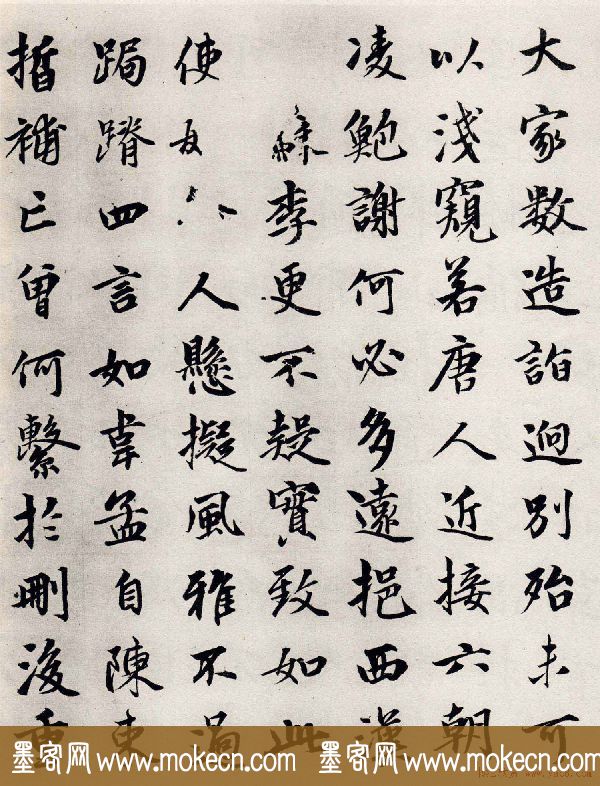 大家數造詣迥別殆未可
以淺窺若唐人近接六朝
凌鮑謝何必多遠挹西漢
李更不疑實致如此
使 人懸擬風雅不過
跼蹐四言如韋孟自陳
晢補亡曾何繫於刪後重
墨客网 www.mokecn.com 墨客网 www.mokecn.com